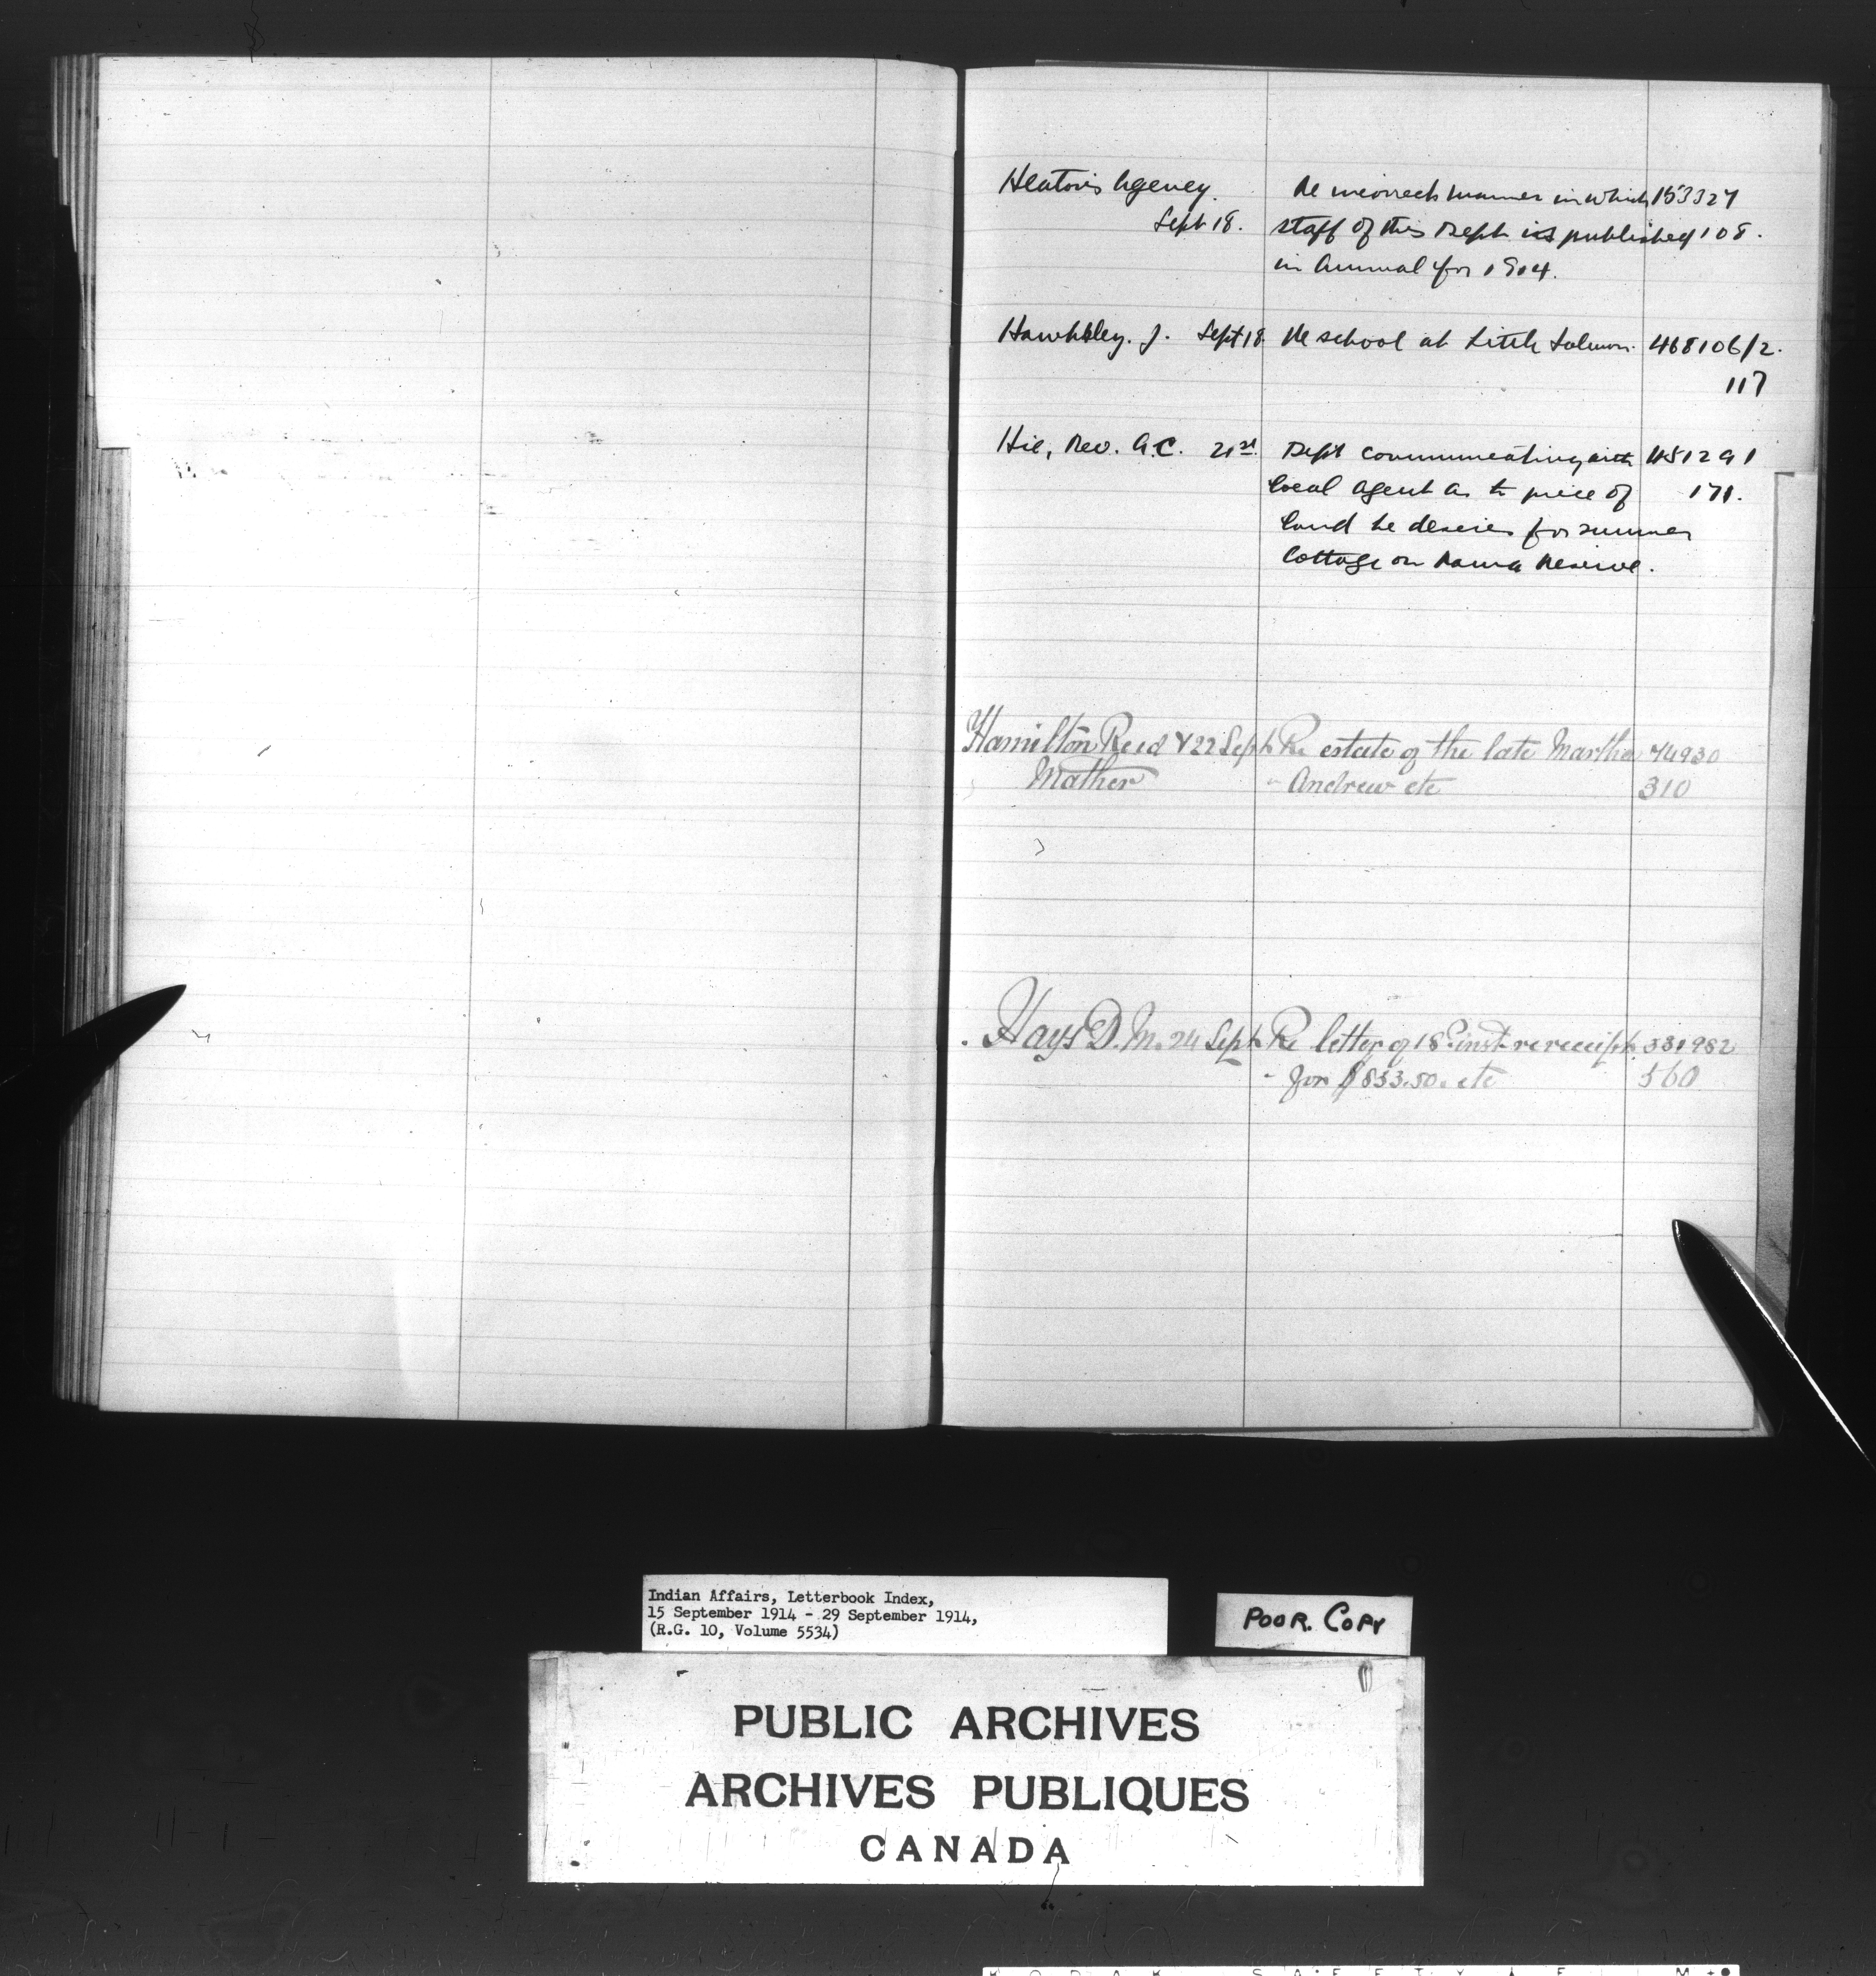 Heaton's Agency. Re incorrect manner in which 153327
Sept 18. staff of this Dept is published 108.
in Annual for 1914.
Hawkksley. J. Sept 18. Re school at Little Salmon. 468106/2.
117
Hie, Rev. A.C. 21st. Dept communicating with 451291
local agent as to piece of 171.
land he desires for summer
cottage on Rama Reserve.
Hamilton Reed & 22 Sept Re estate of the late Martha 74930
Mather " Andrew etc 310
Hays D. M. 24 Sept Re letter of 18th inst re receipt 331982
" for $853.50. etc 560
Indian Affairs, Letterbook Index,
15 September 1914 - 29 September 1914,
(R.G. 10, Volume 5534)
POOR. COPY
PUBLIC ARCHIVES
ARCHIVES PUBLIQUES
CANADA